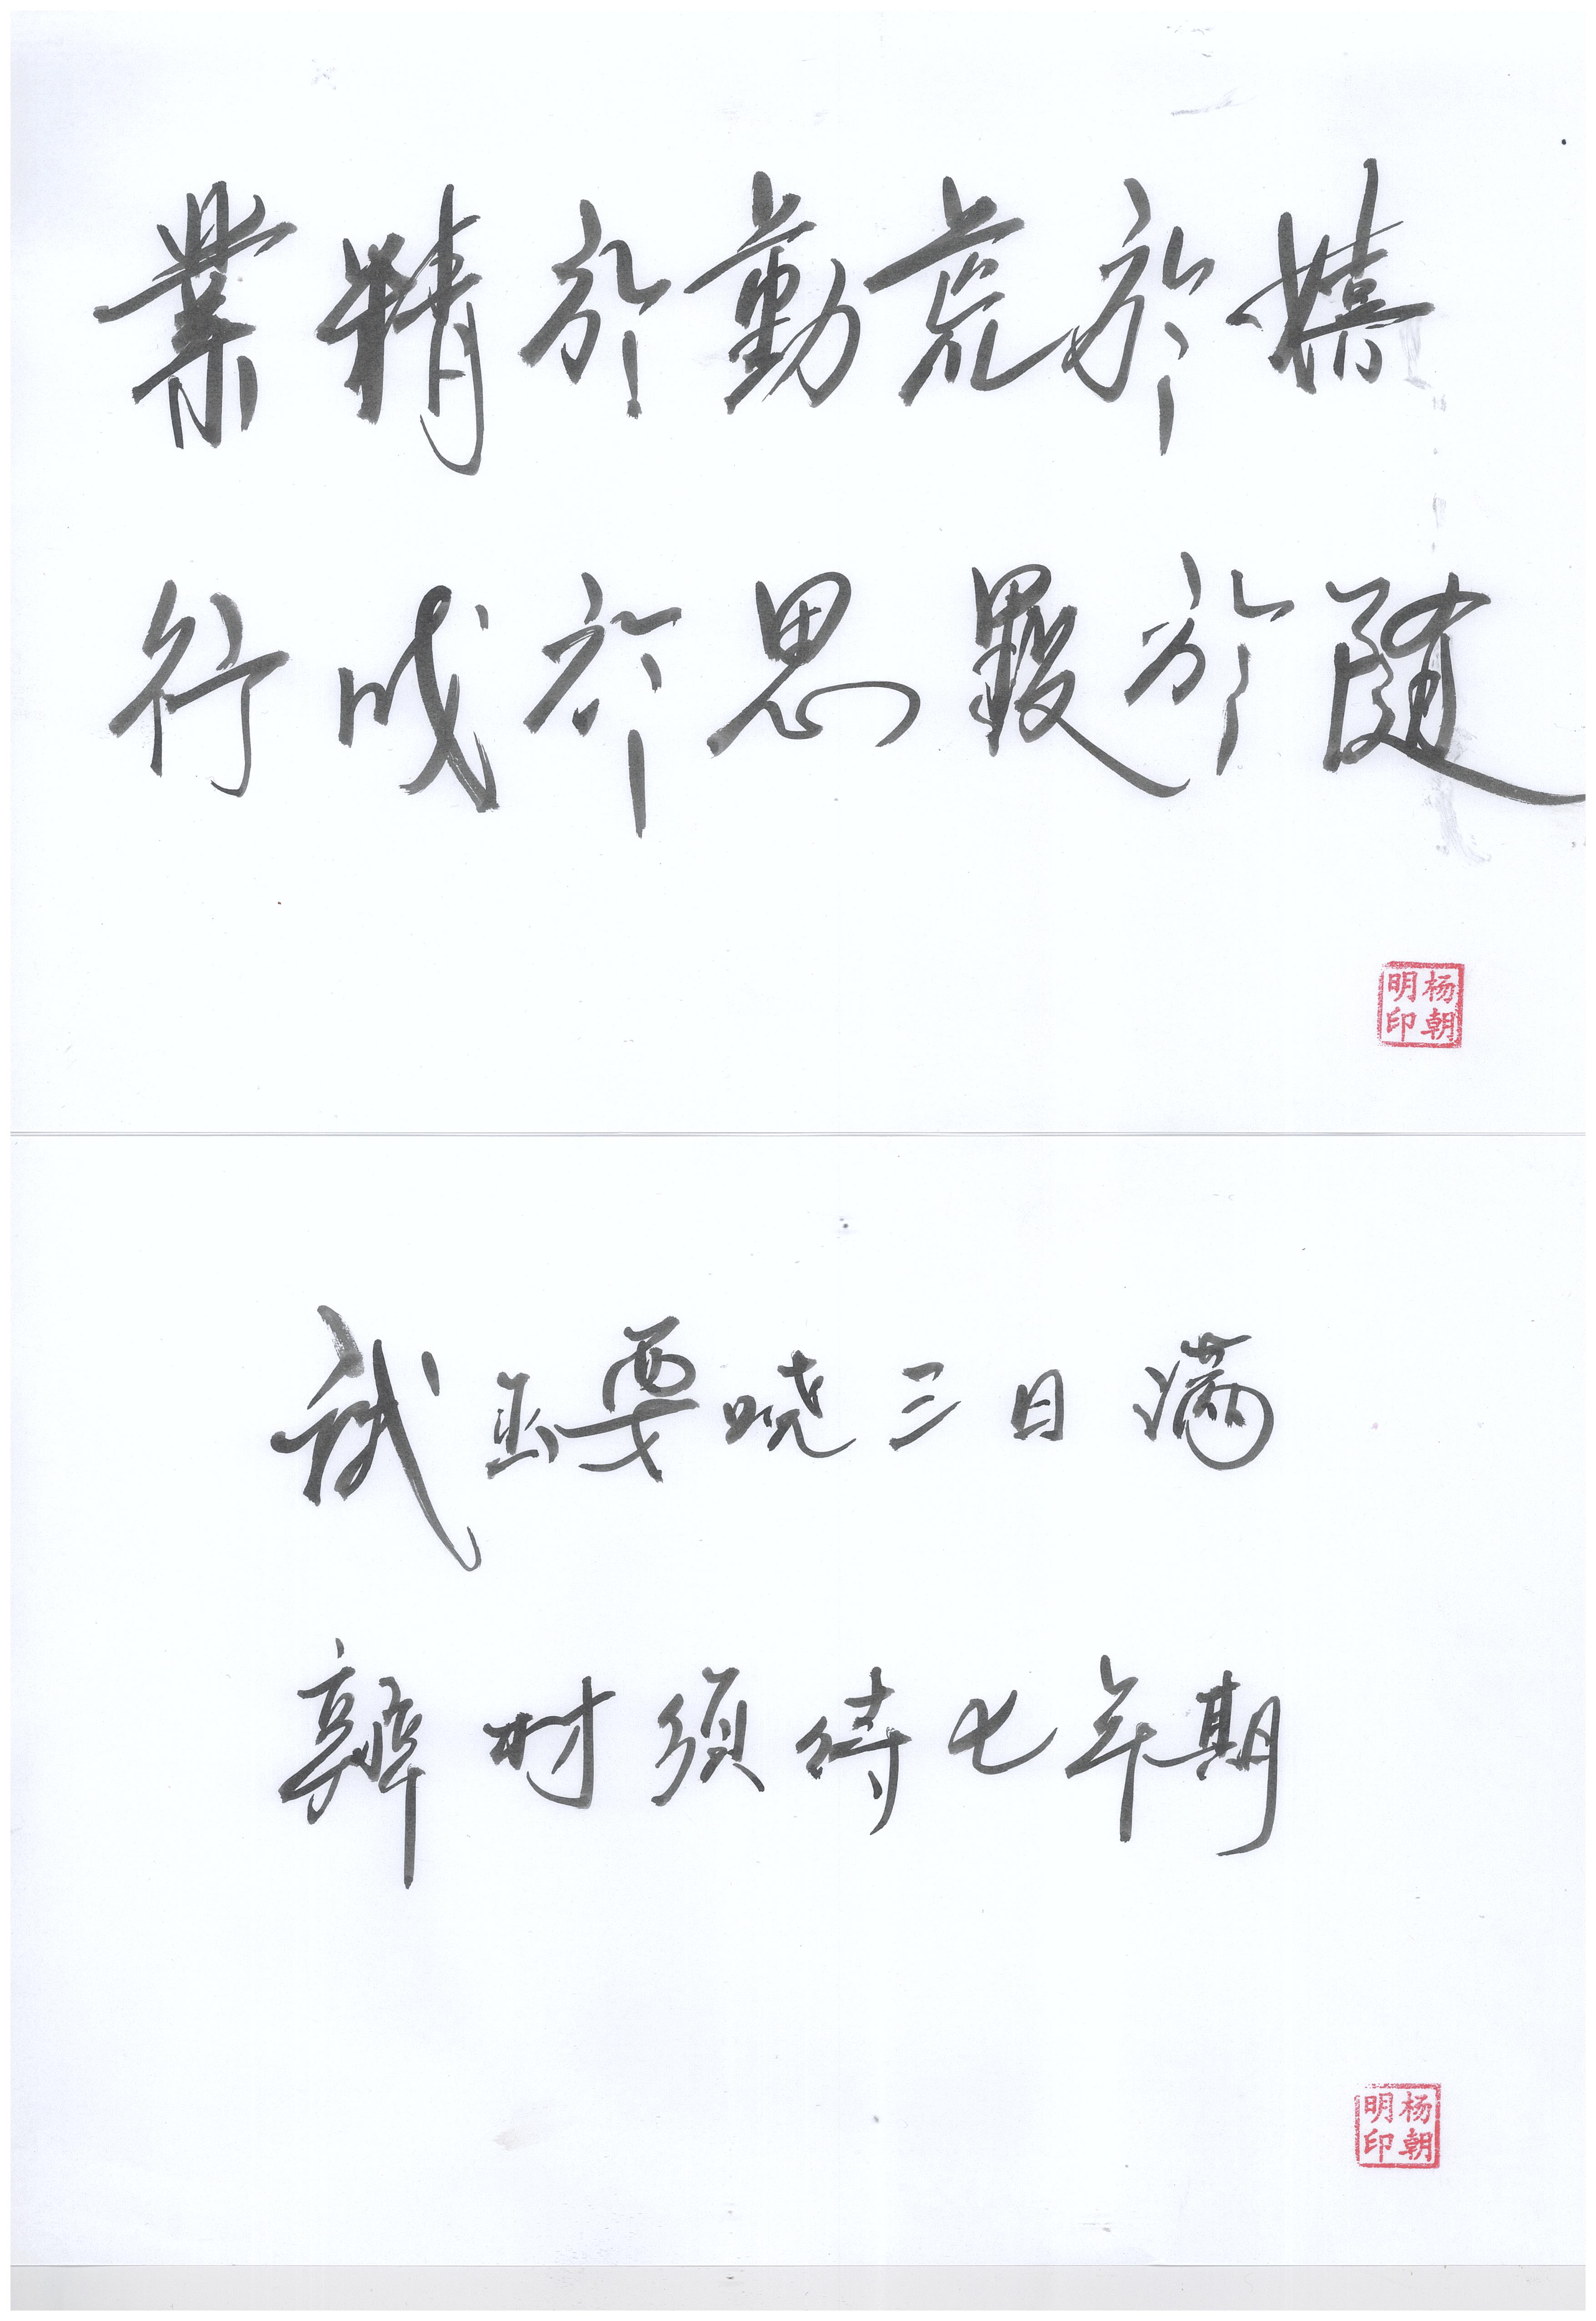 業精於勤荒於嬉
行成於思毀於随
杨朝明印
試玉要烧三日满
辨材須待七年期
杨朝明印